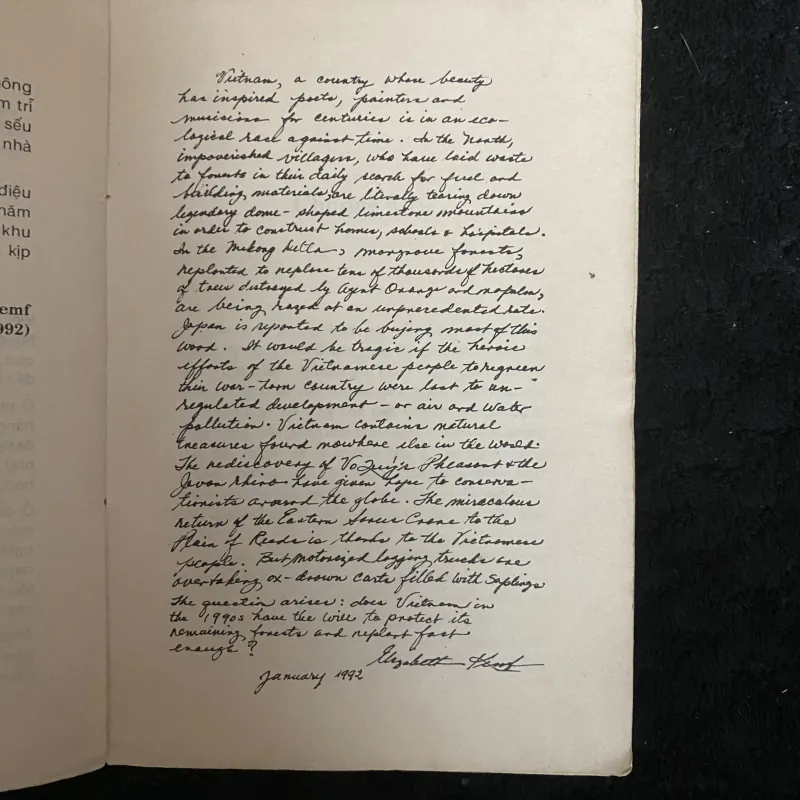 ông
m trĩ
sếu
nhà
điệu
năm
khu
kịp
emf
992)
Vietnam, a country whose beauty
has inspired poets, painters and
musicians for centuries is in an eco-
logical race against time. In the North,
impoverished villagers, who have laid waste
to forests in their daily search for fuel and
building materials, are literaly tearing down
legendary dome-shaped limestone mountains
in order to construct homes, schools & hospitals.
In the Mekong Delta, mangrove forests,
replanted to replace tens of thousands of hectares
of trees destroyed by Agent Orange and napalm,
are being razed at an unprecedented rate.
Japan is reported to be buying most of this
wood. It would be tragic if the heroic
efforts of the Vietnamese people to regreen
their war-torn country were lost to un-
regulated development - or air and water
pollution. Vietnam contains natural
treasures found nowhere else in the world.
The rediscovery of Vo Quý's Pheasant & the
Javan Rhino have given hope to conserva-
tionists around the globe. The miraculous
return of the Eastern Sarus Crane to the
Plain of Reeds is thanks to the Vietnamese
people. But motorized logging trucks are
overtaking ox-drawn carts filled with saplings
The question arises: does Vietnam in
the 1990s have the will to protect its
remaining forests and replant fast
enough?
Elizabeth Kemf
January 1992